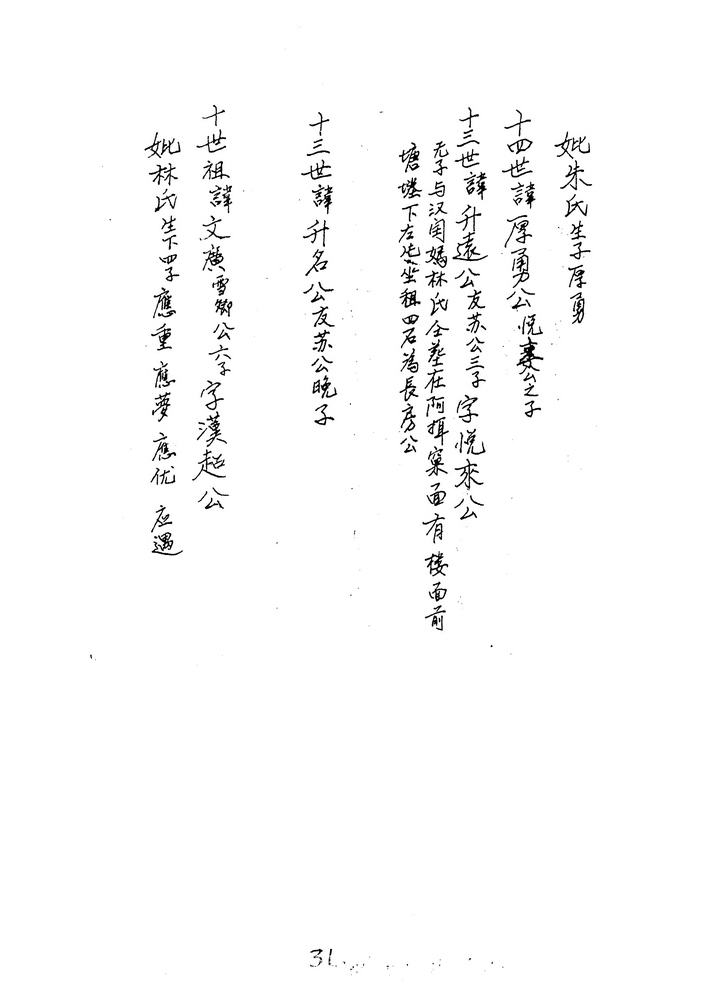 妣朱氏生子厚勇
十四世諱厚勇公悦公之子
十三世諱升遠公友苏公三子字悦來公
无子与汉闰媽林氏仝墓在阿挕窠面有楼面前
塘塍下左坐租四石為長房公
十三世諱升名公友苏公晚子
十世祖諱文廣雪卿公六子字漢超公
妣林氏生下四子應重應夢應优应遇
31